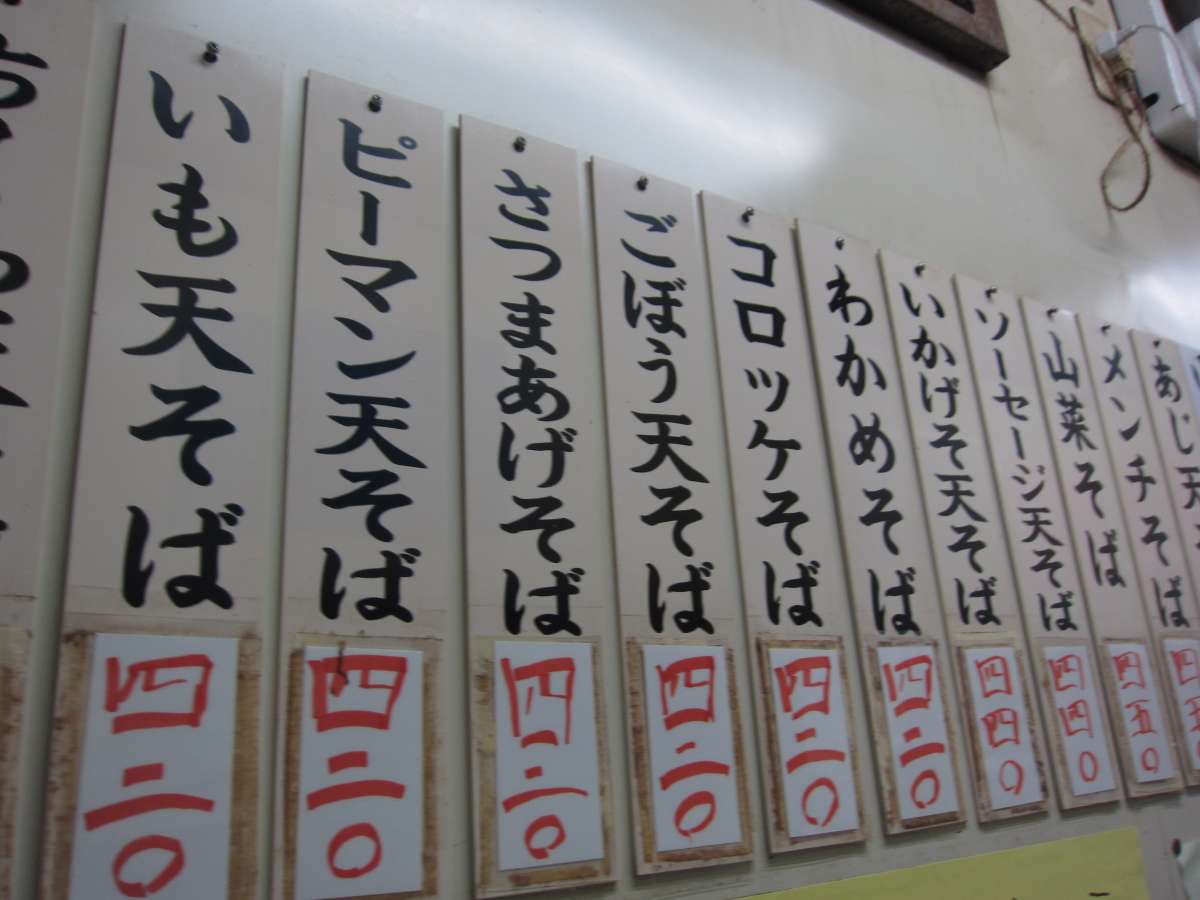 あじ天
メンチそば
四五
山菜そば
四五〇
ソーセージ天そば
四四〇
いかげそ天そば
四四〇
わかめそば
四二〇
コロッケそば
四二〇
ごぼう天そば
四二〇
さつまあげそば
四二〇
ピーマン天そば
四二〇
いも天そば
四二〇